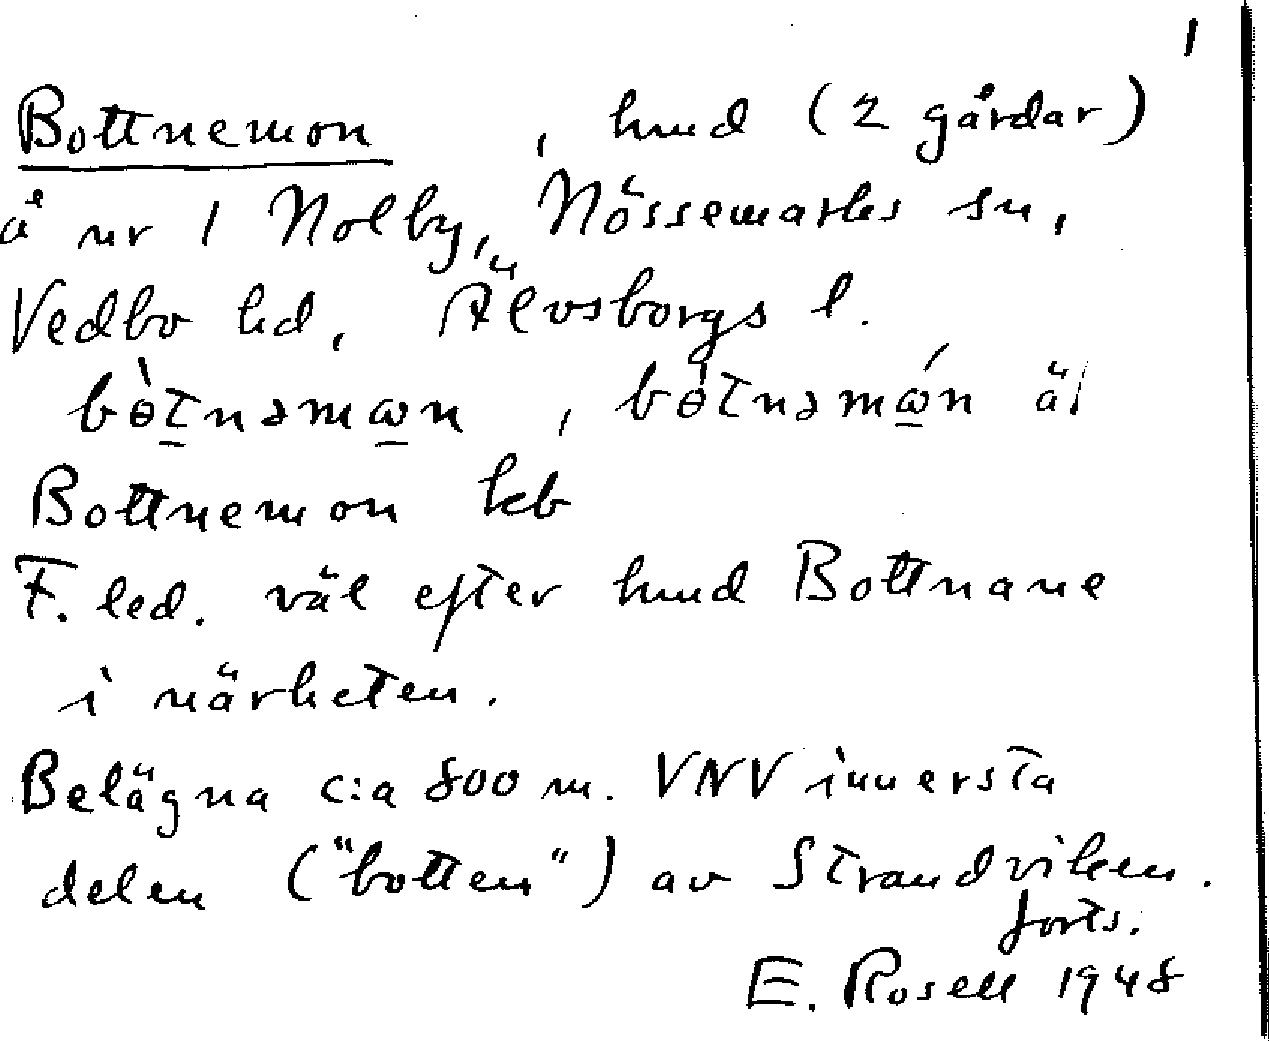 1
Bottnemon , hmd (2 gårdar)
å nr 1 Nolby, Nössemarks sn,
Vedbo hd, Älvsborgs l.
bòt̲nəmω̲n , bòtnəmώ̲n äl
Bottnemon kb
F. led. väl efter hmd Bottnane
i närheten.
Belägna c:a 800 m. VNV innersta
delen ("botten") av Strandviken.
forts.
E. Rosell 1948